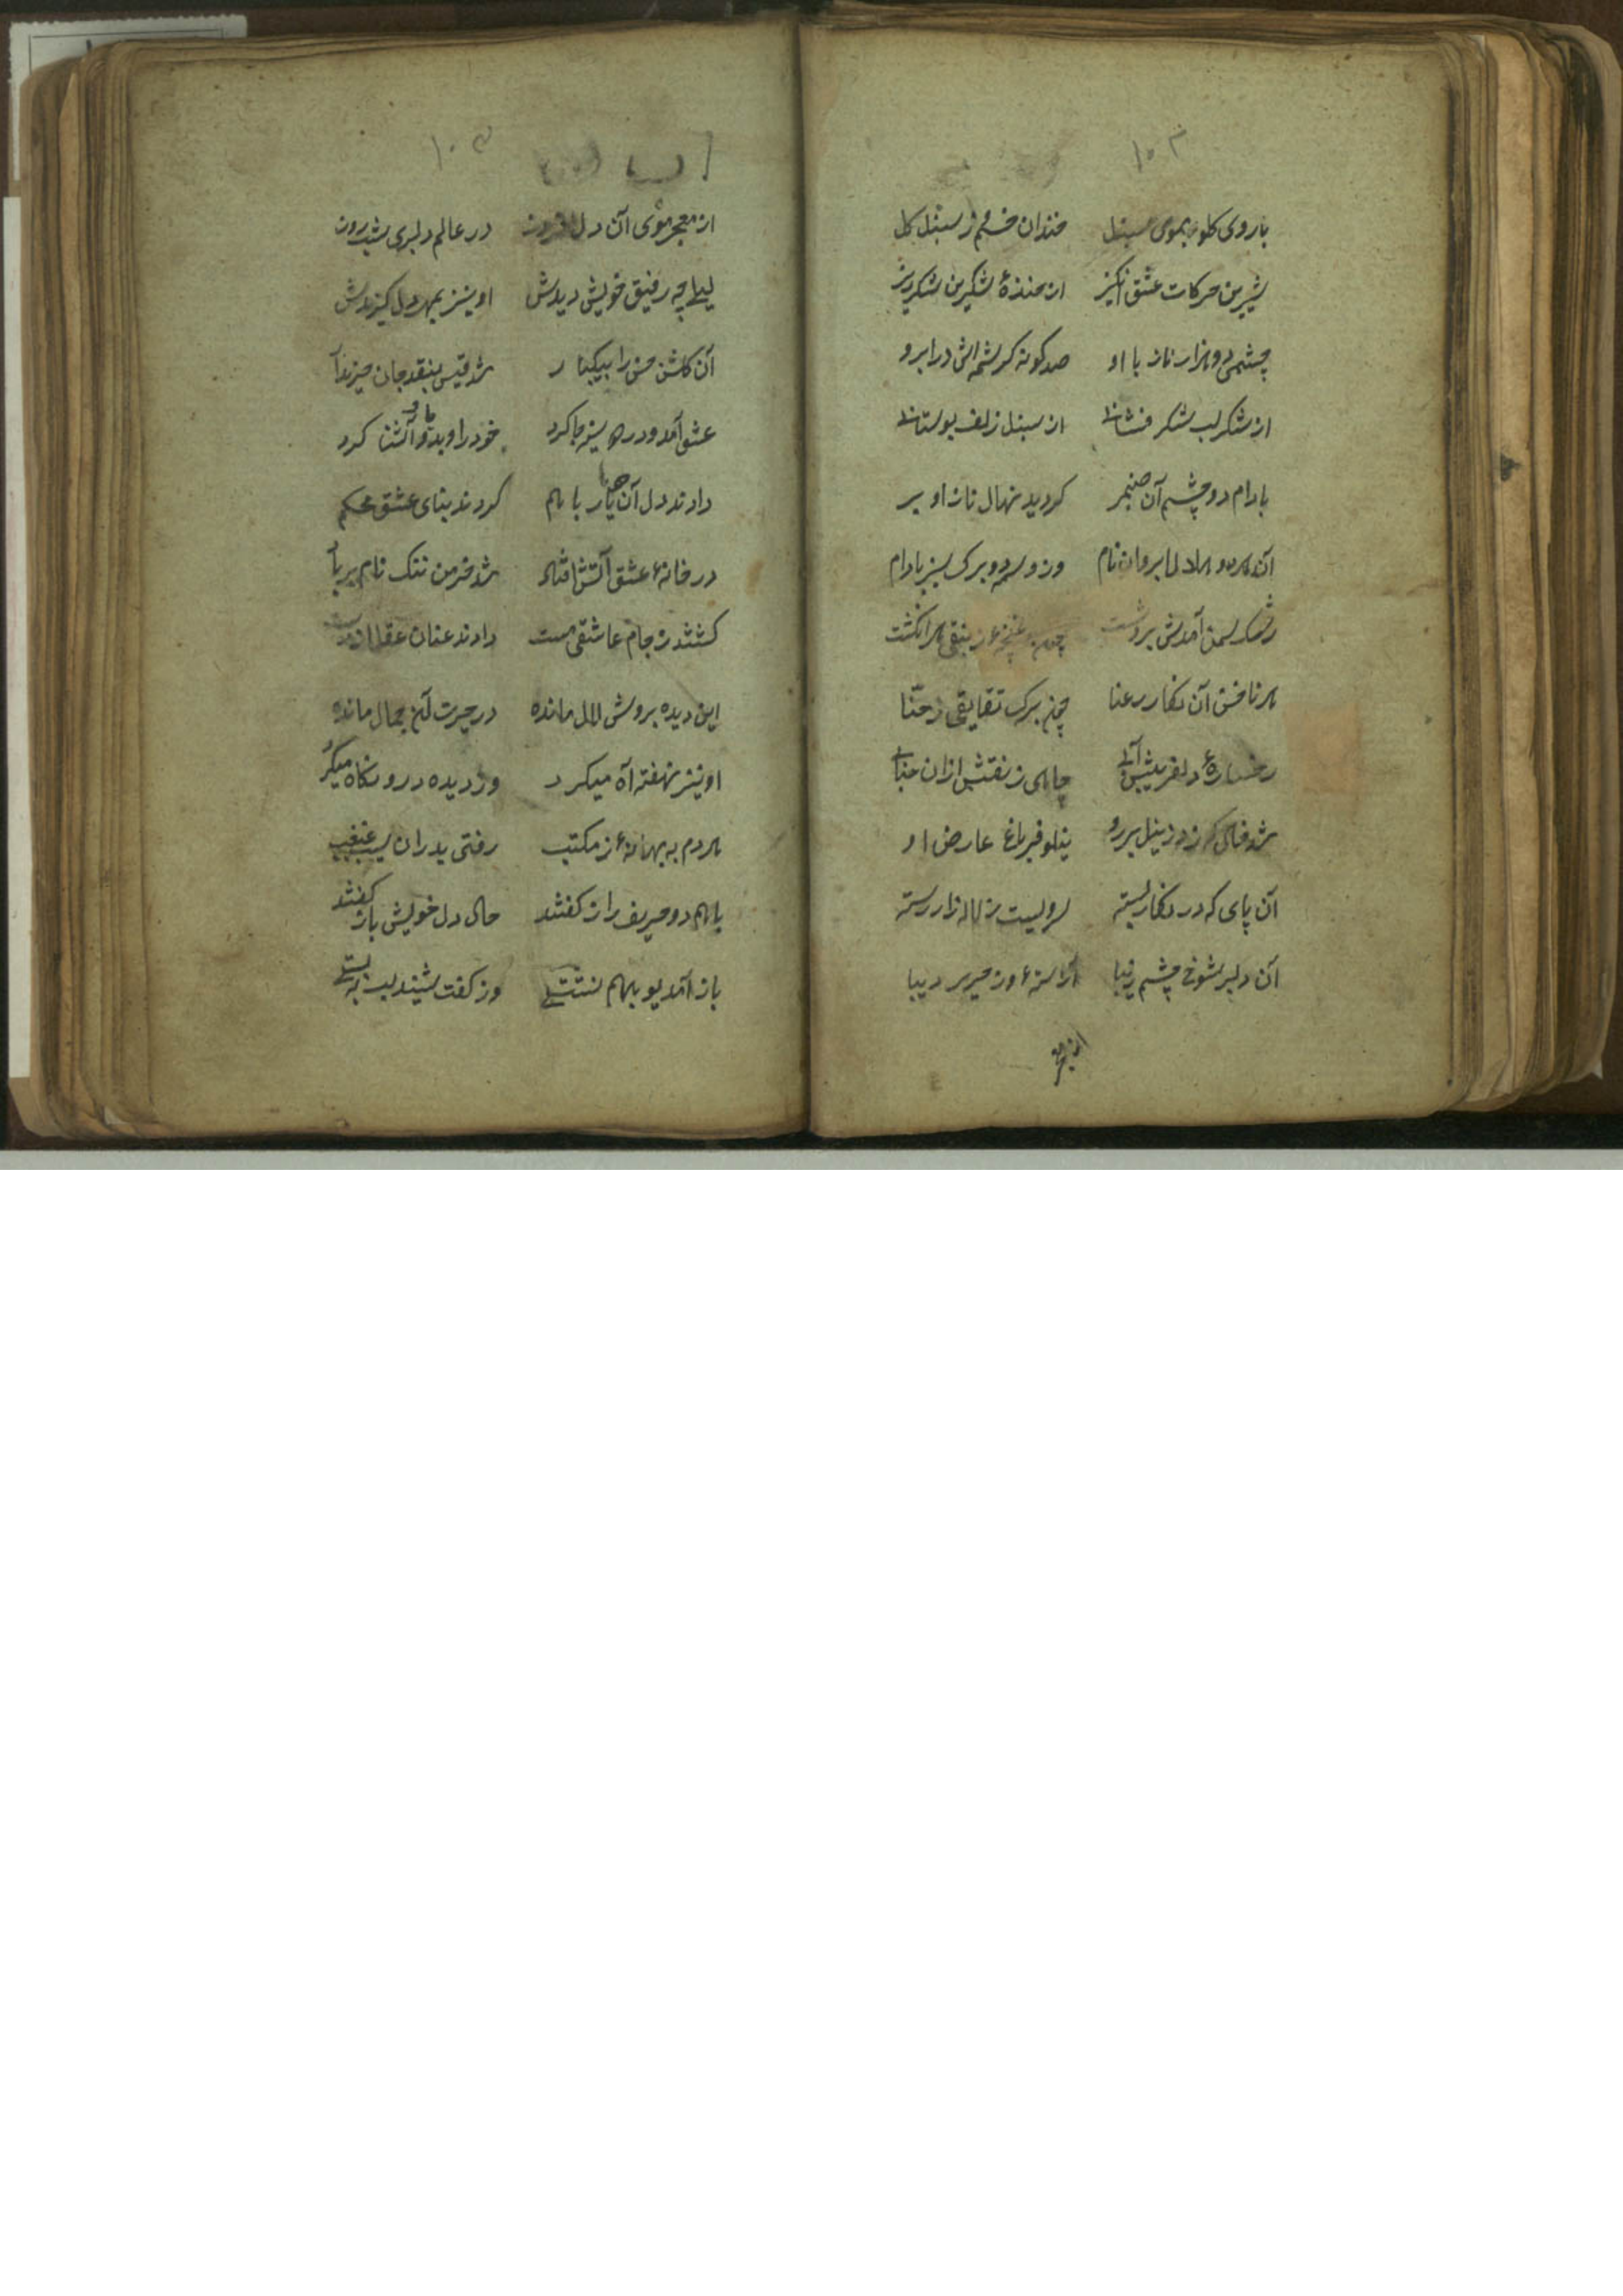 ۱۰۳
باروی کل و بموی سنبل خندان خط و خم ز سنبل کل
شیرین حرکات عشق انکیز از خندهٔ شکرین شکرریز
چشمی و هزار ناز با او صد کونه کرشمه اش در ابرو
از شکر لب شکر فشانی از سنبل زلف بوستانی
بادام دو چشم آن صنمبر کردید نهال ناز او بر
وز وسمه دو برک سبز بادام
آمدش بردشت چون غنچهٔ زنبقی هر انکشت
هر ناخن آن نکار رعنا چون برک شقایقی ز حنا
رخسارهٔ دلفریبش آبی چاهی ز نقش ازان
خالی که زد ز نیل بر رو نیلوفر باغ عارض او
آن پای که در نکار بسته سرویست ز لاله زار رسته
آن دلبر شوخ چشم زیبا آراستهٔ اوز حریر دیبا
از معجر
از معجر موی آن دل افروز در عالم دلبری شب روز
لیلی چه رفیق خویش دیدش او نیز بمهر دل کزیدش
آن کلشن حسن را بیکبار شد قیس بنقد جان خریدار
عشق آمد و در دو سینه جا کرد خود را و بدو آشنا کرد
دادند دل آن دو یار با هم کردند بنای عشق محکم
در خانهٔ عشق آتش افتاد شد خرمن ننک نام بر باد
کشتند ز جام عاشقی مست دادند عنان عقل از دست
این دیده برویش لال مانده در حیرت آن جمال مانده
او نیز نهفته آه میکرد وز دیده درو نکاه میکرد
هر دم به بهانهٔ ز مکتب رفتی بدر ان سیب غبغب
با هم دو حریف راز کفتند حال دل خویش باز کفتند
باز آمدیو بهم نشستی وز کفت شنید لب به بستی